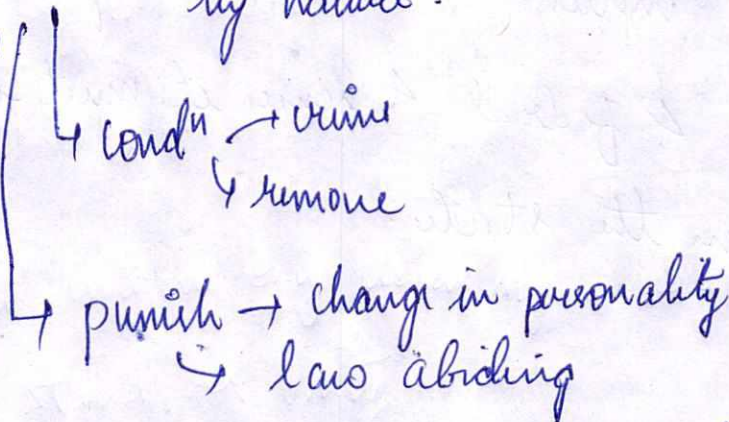 by nature.
↳ condⁿ → crime
↳ remove
→ punish → change in personality
↳ law abiding